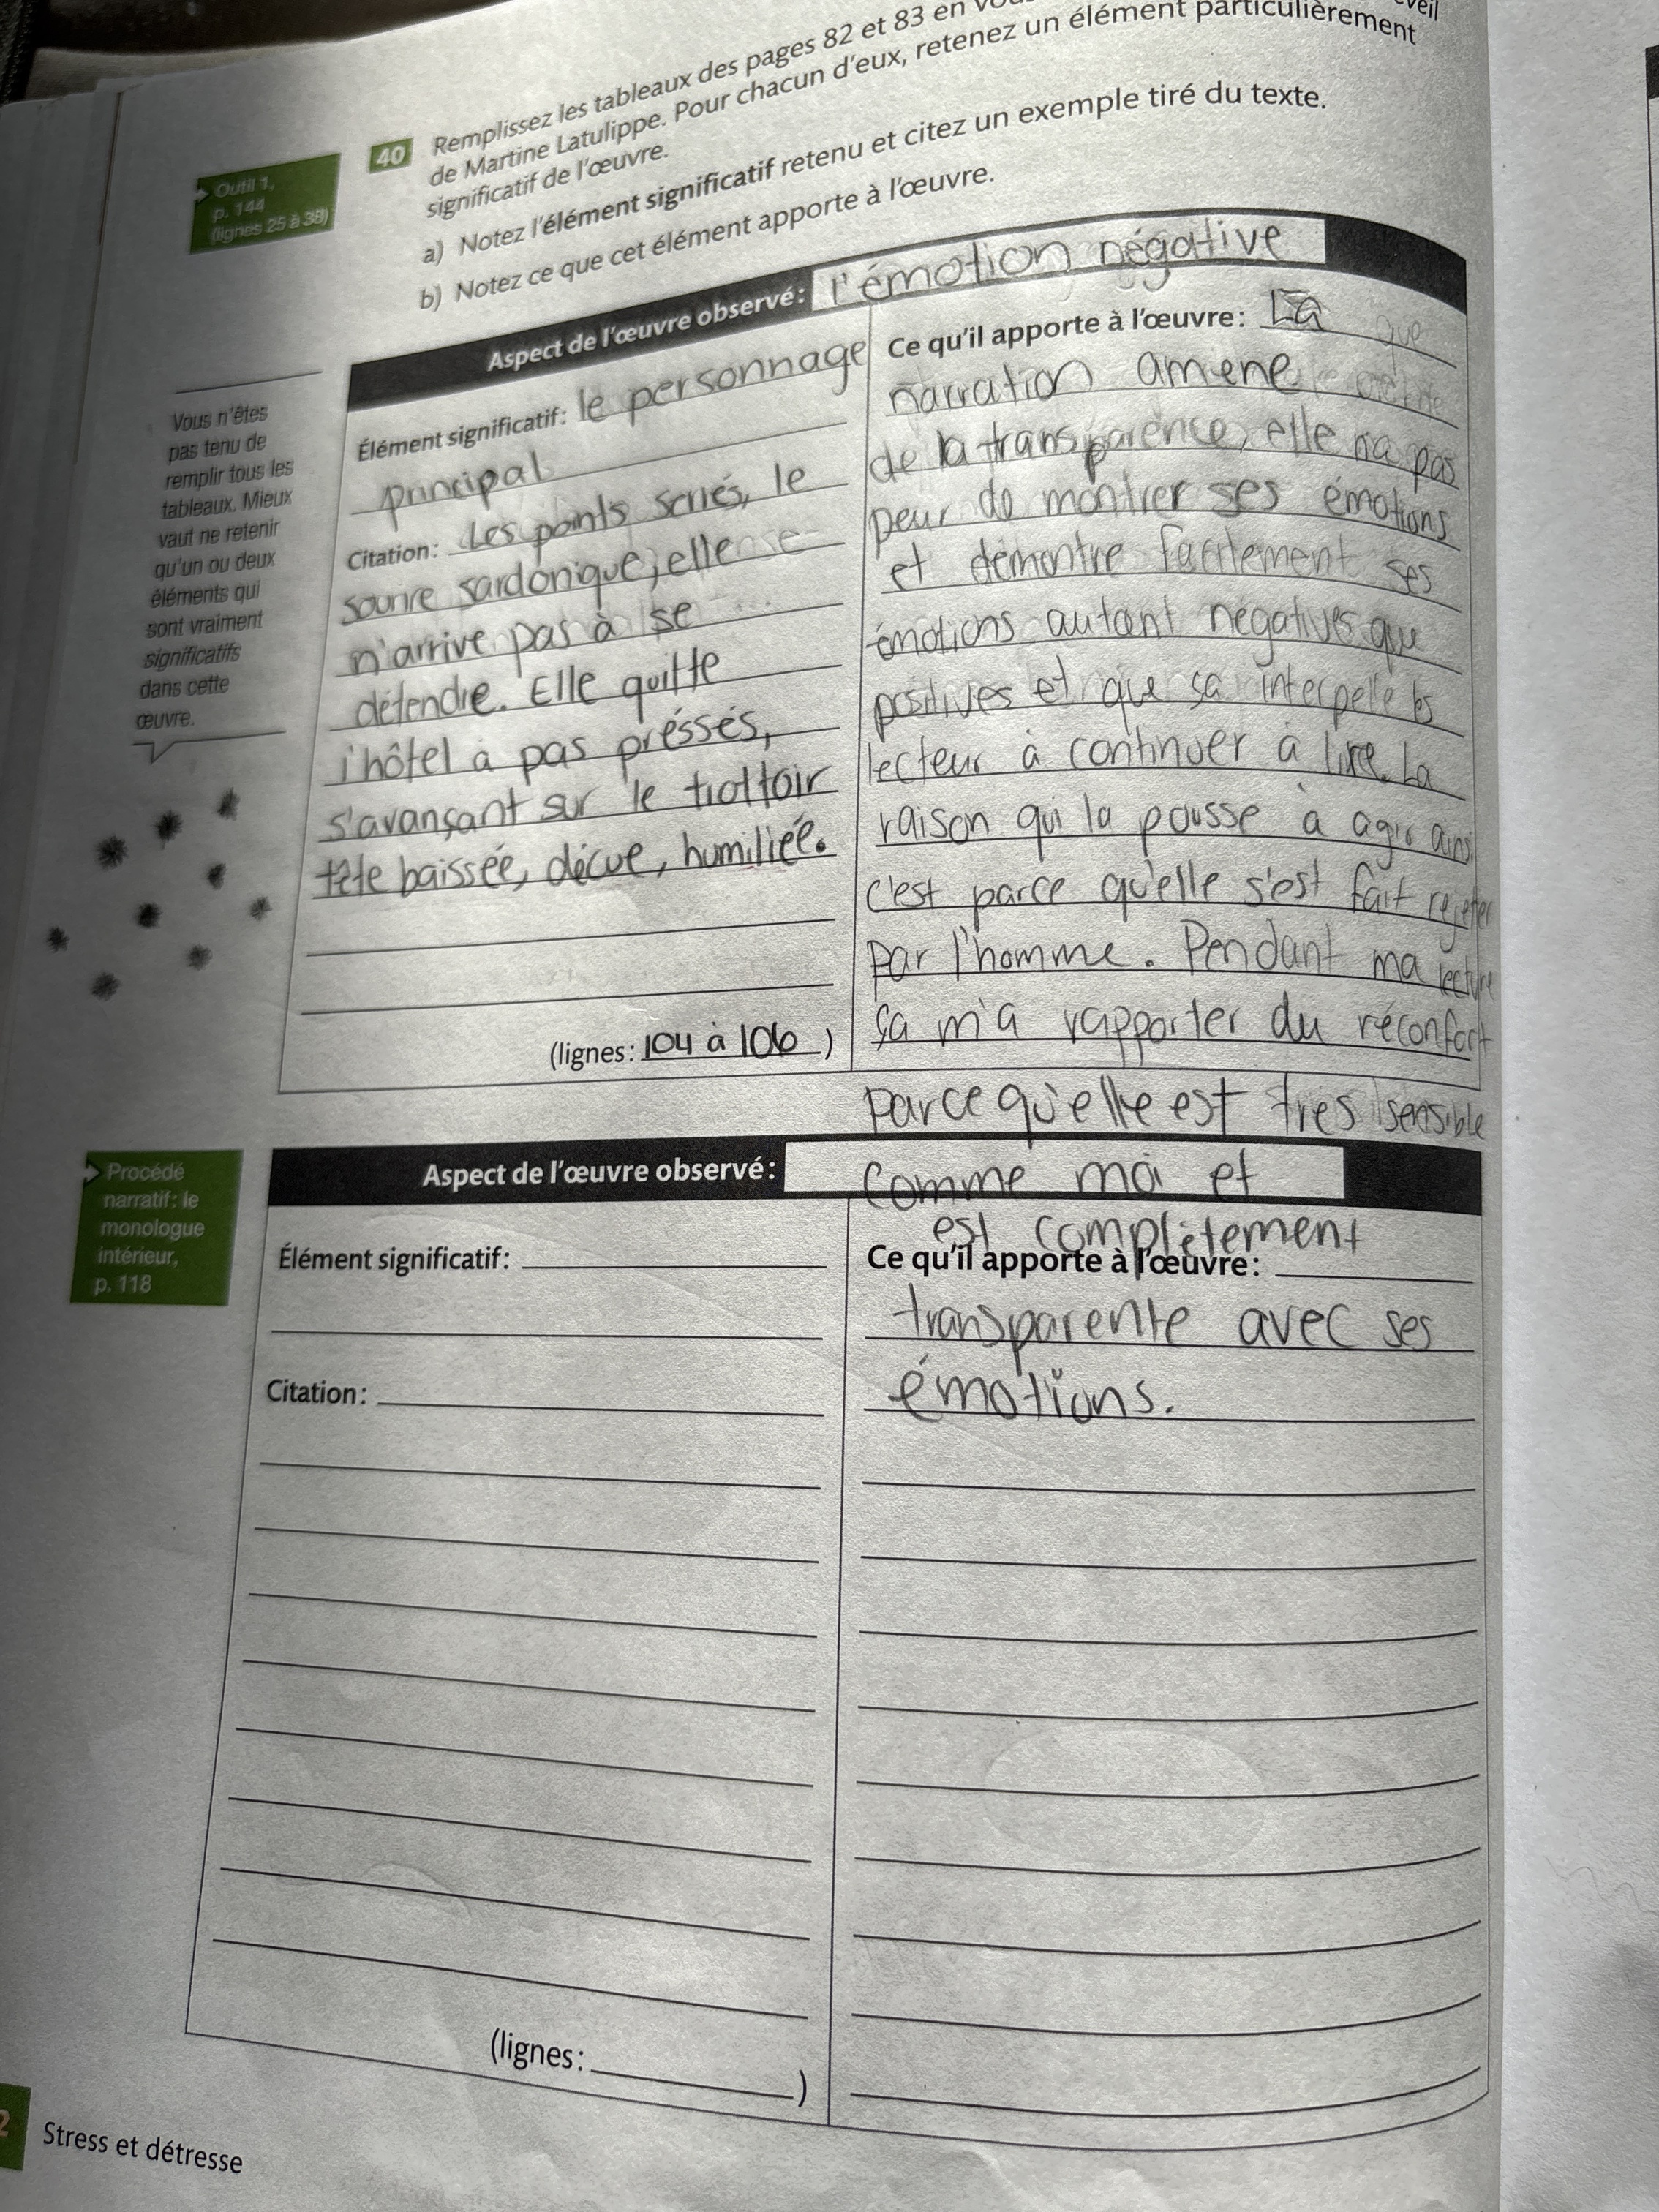 Remplissez les tableaux des pages 82 et 83 en
de Martine Latulippe. Pour chacun d'eux, retenez un élément particulièrement
significatif de l'œuvre.
40
a) Notez l'élément significatif retenu et citez un exemple tiré du texte.
b) Notez ce que cet élément apporte à l'œuvre.
Outil 1,
p. 144
(lignes 25 à 38)
Vous n'êtes
pas tenu de
remplir tous les
tableaux. Mieux
vaut ne retenir
qu'un ou deux
éléments qui
sont vraiment
significatifs
dans cette
œuvre.
Aspect de l'œuvre observé: l'émotion négative
Élément significatif: le personnage
principal
Citation: Les points serrés, le
sourire sardonique, elle
n'arrive pas à se
détendre. Elle quitte
l'hôtel à pas préssés,
s'avançant sur le trottoir
tête baissée, décue, humiliée.
(lignes: 104 à 106)
Ce qu'il apporte à l'œuvre: La
narration amene
de la transparence, elle n'a pas
peur de montrer ses émotions
et démontre facilement ses
émotions autant négatives que
positives et que ça interpelle les
lecteur à continuer à lire. La
raison qui la pousse à agir ainsi
c'est parce qu'elle s'est fait rejeter
par l'homme. Pendant ma lecture
ça m'a rapporter du réconfort
parce qu'elle est tres sensible
comme moi et
est complètement
transparente avec ses
émotions.
Procédé
narratif: le
monologue
intérieur,
p. 118
Aspect de l'œuvre observé:
Élément significatif:
Citation:
(lignes: )
Ce qu'il apporte à l'œuvre:
2 Stress et détresse